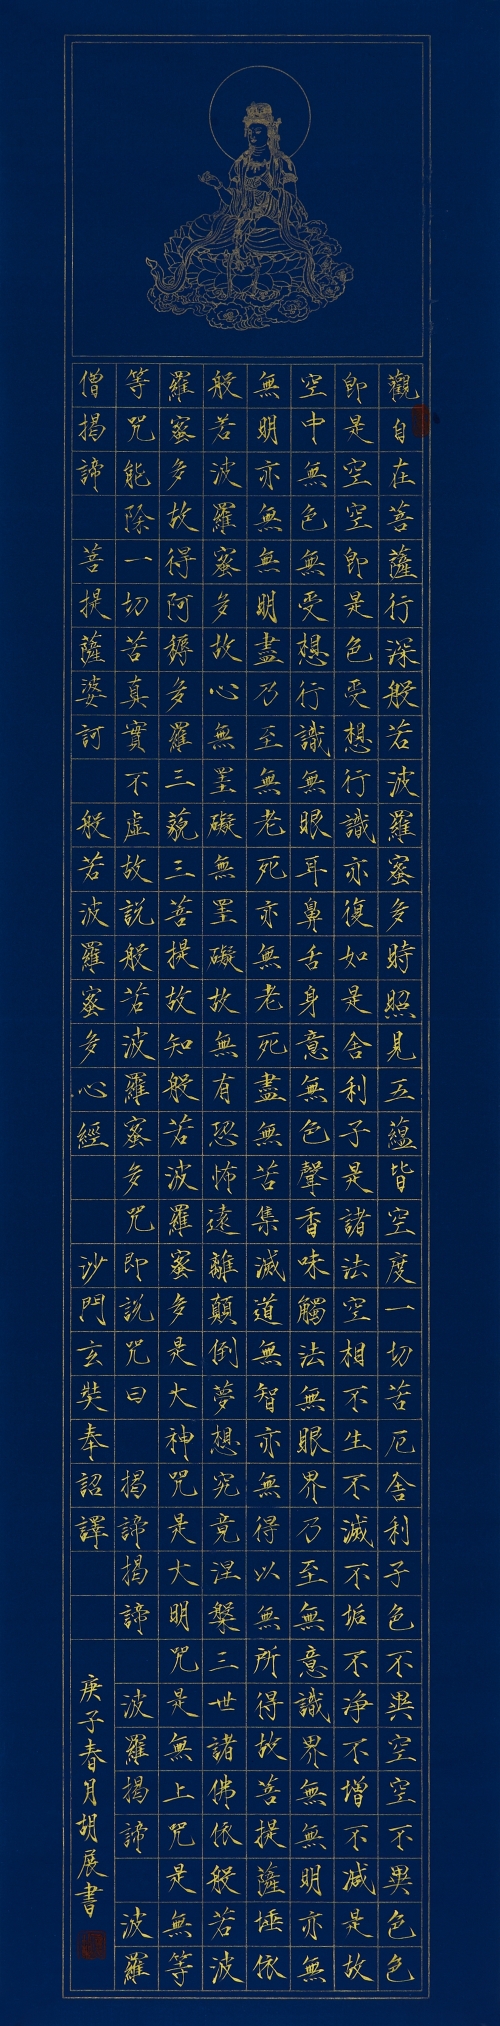 觀自在菩薩行深般若波羅蜜多時照見五蘊皆空度一切苦厄舍利子色不異空空不異色色
即是空空即是色受想行識亦復如是舍利子是諸法空相不生不滅不垢不淨不增不減是故
空中無色無受想行識無眼耳鼻舌身意無色聲香味觸法無眼界乃至無意識界無無明亦無
無明亦無無明盡乃至無老死亦無老死盡無苦集滅道無智亦無得以無所得故菩提薩埵依
般若波羅蜜多故心無罣礙無罣礙故無有恐怖遠離顛倒夢想究竟涅槃三世諸佛依般若波
羅蜜多故得阿耨多羅三藐三菩提故知般若波羅蜜多是大神咒是大明咒是無上咒是無等
等咒能除一切苦真實不虛故說般若波羅蜜多咒即說咒曰 揭諦揭諦 波羅揭諦 波羅
僧揭諦 菩提薩婆訶 般若波羅蜜多心經 沙門玄奘奉詔譯
庚子春月胡展書